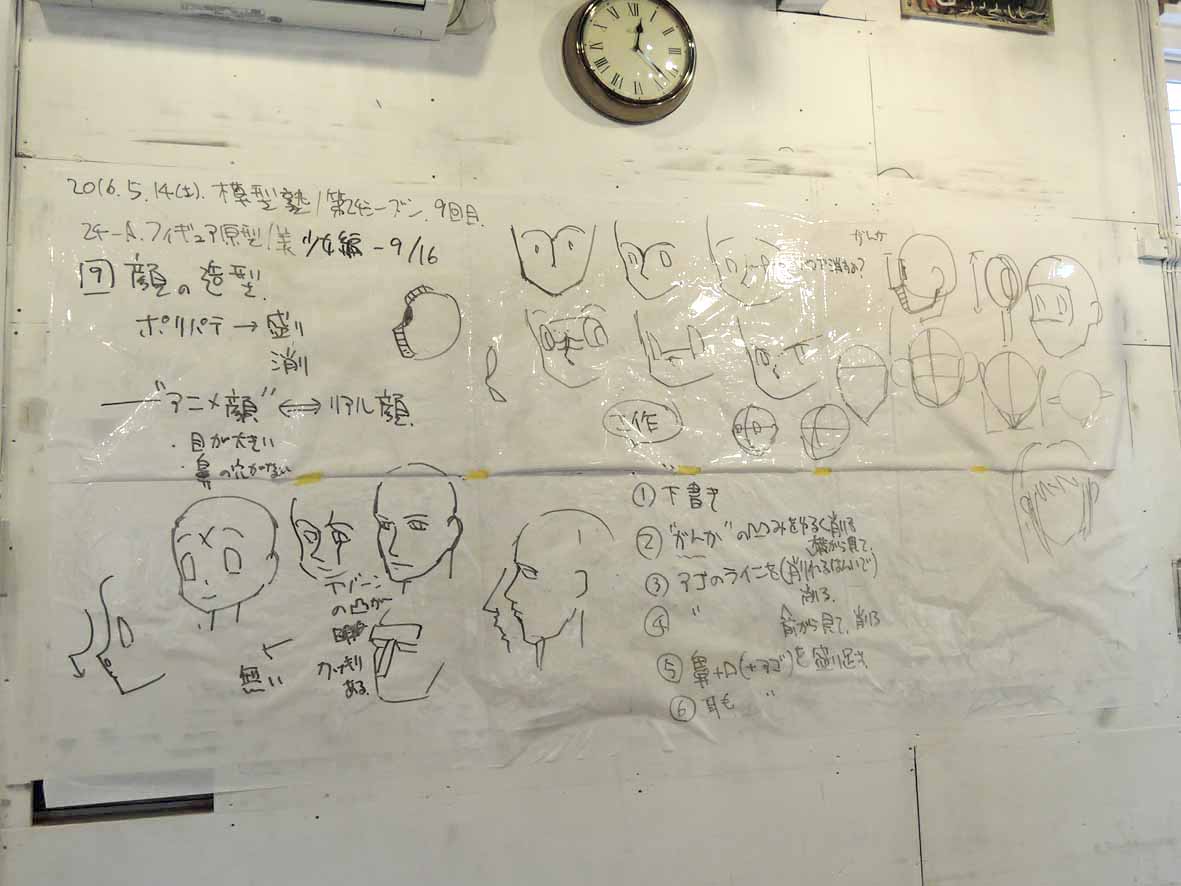 2016.5.14(土). 模型塾/第24シーズン. 9回目.
24-A. フィギュア原型/美少女編-9/16
9 顔の造型.
ポリパテ→盛り
削り
"アニメ顔"⟺リアル顔.
・目が大きい
・鼻の穴がない
の凸が
ある.
無い
がんか
工作
① 下書き
② "がんか"の凹みをゆるく削る
横から見て.
③ アゴのラインを(削れるはんいで)
削る.
④ 〃 前から見て、削る
⑤ 鼻+口(+アゴ)を盛り足す
⑥ 耳も 〃
XII I II III IIII V VI VII VIII IX X XI